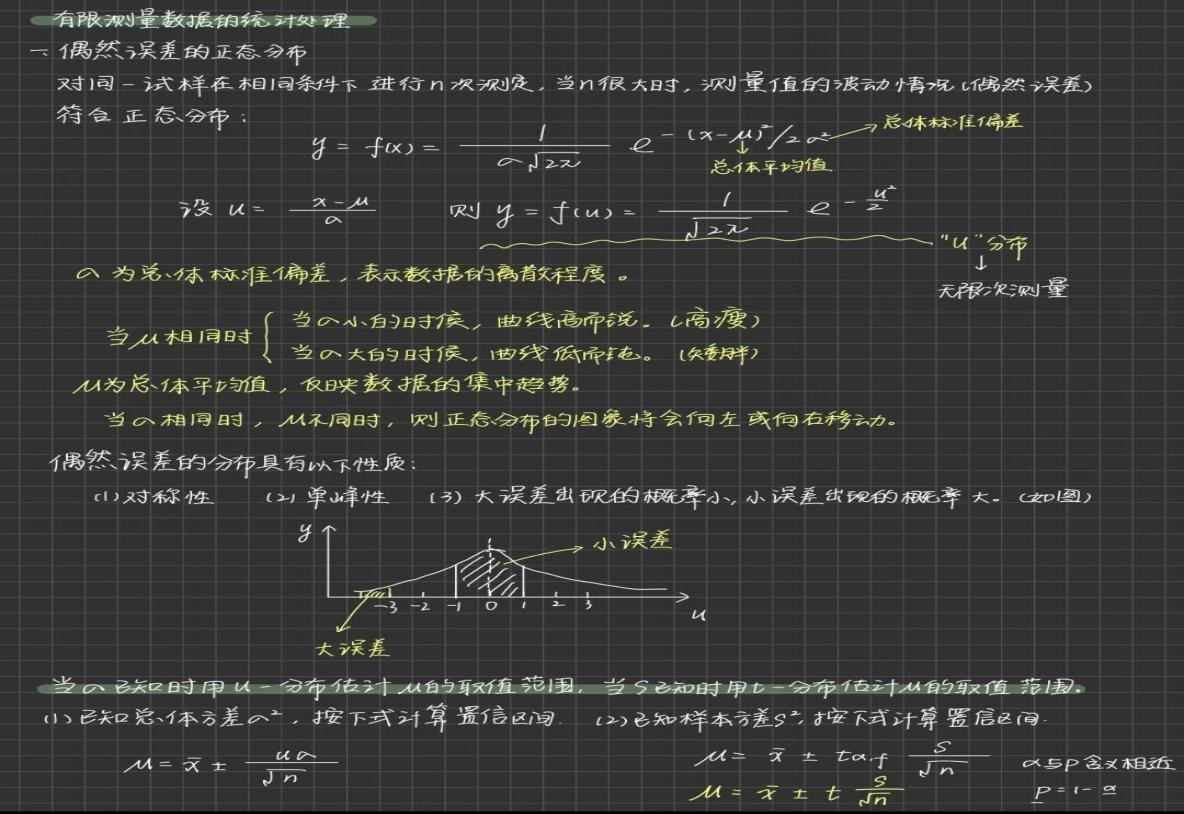 有限测量数据的统计处理
一、偶然误差的正态分布
对同一试样在相同条件下进行n次测定,当n很大时,测量值的波动情况(偶然误差)
符合正态分布:
y = f(x) = 1/(σ√2π) e^-(x-μ)²/2σ² → 总体标准偏差
↓
总体平均值
设 u = (x-μ)/σ 则 y = f(u) = 1/√2π e^-u²/2
"u"分布
↓
无限次测量
σ为总体标准偏差,表示数据的离散程度。
当μ相同时 { 当σ小的时候,曲线高而锐。(高瘦)
当σ大的时候,曲线低而钝。(矮胖)
μ为总体平均值,反映数据的集中趋势。
当σ相同时,μ不同时,则正态分布的图象将会向左或向右移动。
偶然误差的分布具有以下性质:
(1)对称性 (2)单峰性 (3)大误差出现的概率小,小误差出现的概率大。(如图)
y
小误差
-3 -2 -1 0 1 2 3
u
大误差
当σ已知时用u-分布估计μ的取值范围,当S已知时用t-分布估计μ的取值范围.
(1)已知总体方差σ²,按下式计算置信区间. (2)已知样本方差S²,按下式计算置信区间.
μ = x̄ ± uσ/√n
μ = x̄ ± tα.f S/√n α与P含义相近
μ = x̄ ± t S/√n P = 1-α